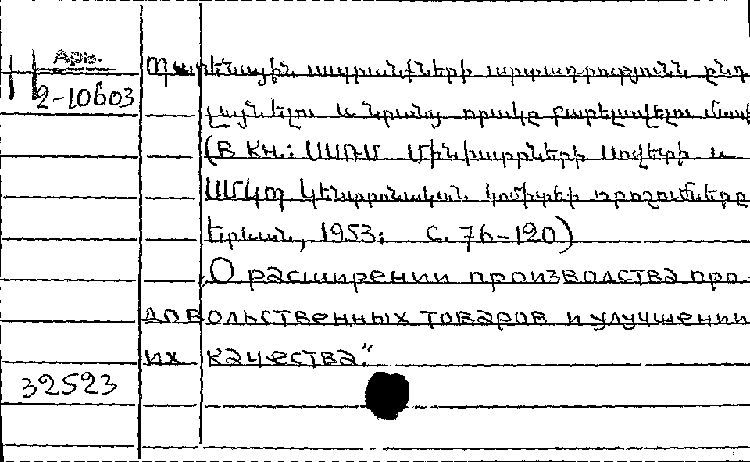 Арм.
2-10603
Պարենային ապրանքների արտադրությունն ընդ
լայնելու և նրանց որակը բարելավելու մասի
(В кн.: ՍՍՌՄ Մինիստրների Սովետի և
ՍՄԿՊ Կենտրոնական կոմիտեի որոշումները
Երևան, 1953; С. 76-120)
„О расширении производства про-
довольственных товаров и улучшении
их качества."
32523